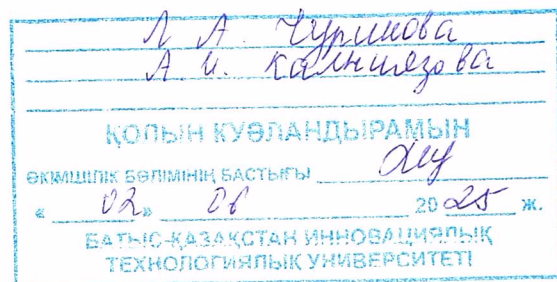 Л А. Чурикова
А. И. Калниязова
ҚОЛЫН КУӘЛАНДЫРАМЫН
ӘКІМШІЛІК БӨЛІМІНІҢ БАСТЫҒЫ
« 02 » 06 20 25 ж.
БАТЫС-ҚАЗАҚСТАН ИННОВАЦИЯЛЫҚ
ТЕХНОЛОГИЯЛЫҚ УНИВЕРСИТЕТІ